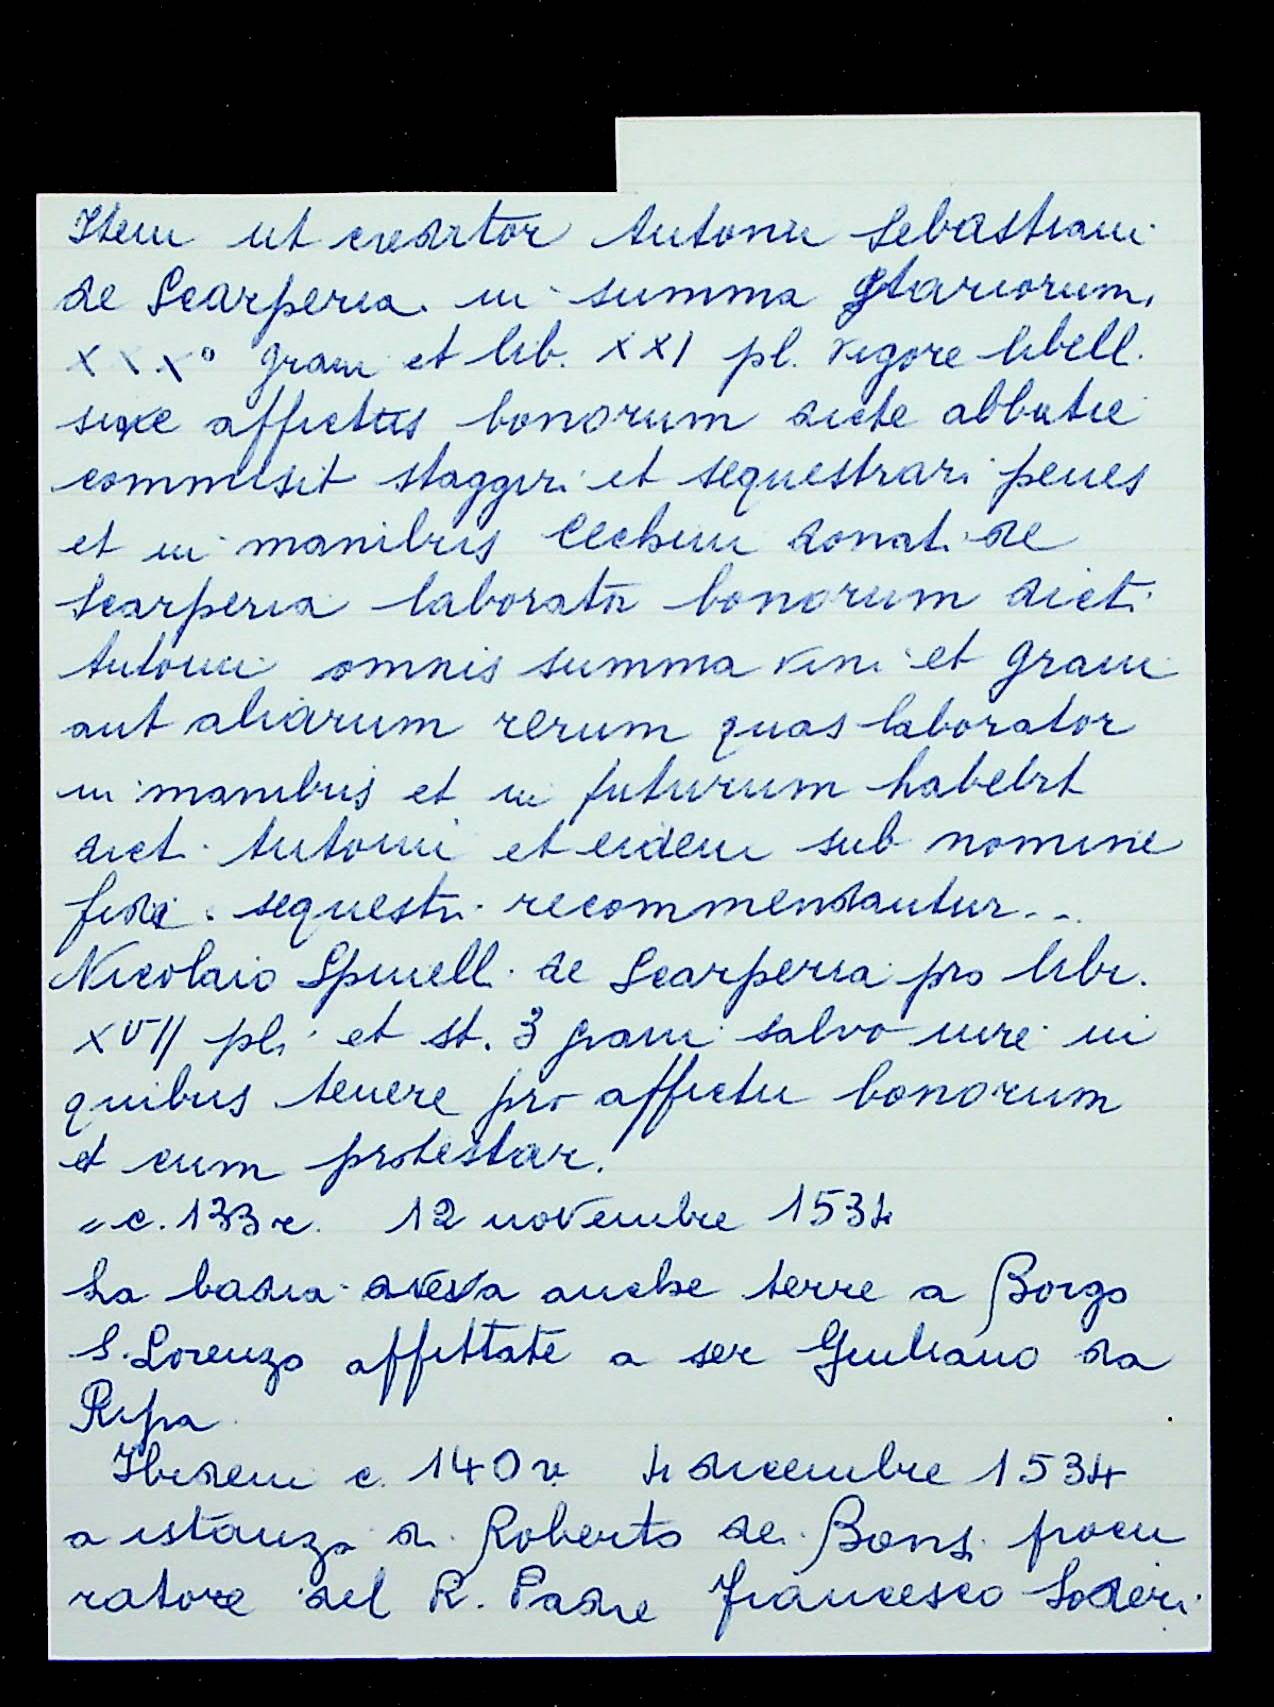 Item ut creditor Antonii Sebastiani
de Scarperia in summa stariorum
XXX° grani et lib. XXI pl. vigore libell.
sive affictus bonorum dicte abbatie
commisit staggiri et sequestrari penes
et in manibus Cechini donati de
Scarperia laborator bonorum dicti
Antonii omnis summa vini et grani
aut aliarum rerum quas laborator
in manibus et in futurum habebit
dicti Antonii et eidem sub nomine
fidei sequestri recommendantur...
Nicolaio Spinelli de Scarperia pro libr.
XVII pli et st. 3 grani salvo iure in
quibus tenere pro affictu bonorum
et cum protestar.
" c. 133 r. 12 novembre 1534
La badia aveva anche terre a Borgo
S. Lorenzo affittate a ser Giuliano da
Ripa
Ibidem c. 140 v. 4 dicembre 1534
a istanza di Roberto de Bonsi procu
ratore del R. Padre Francesco Soderi